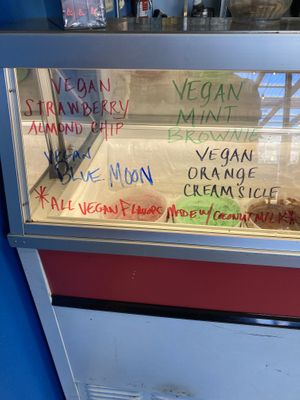 VEGAN
STRAWBERRY
ALMOND CHIP
VEGAN
MINT
BROWNIE
VEGAN
BLUE MOON
VEGAN
ORANGE
CREAM'SICLE
*ALL VEGAN FLAVORS MADE W/ COCONUT MILK*